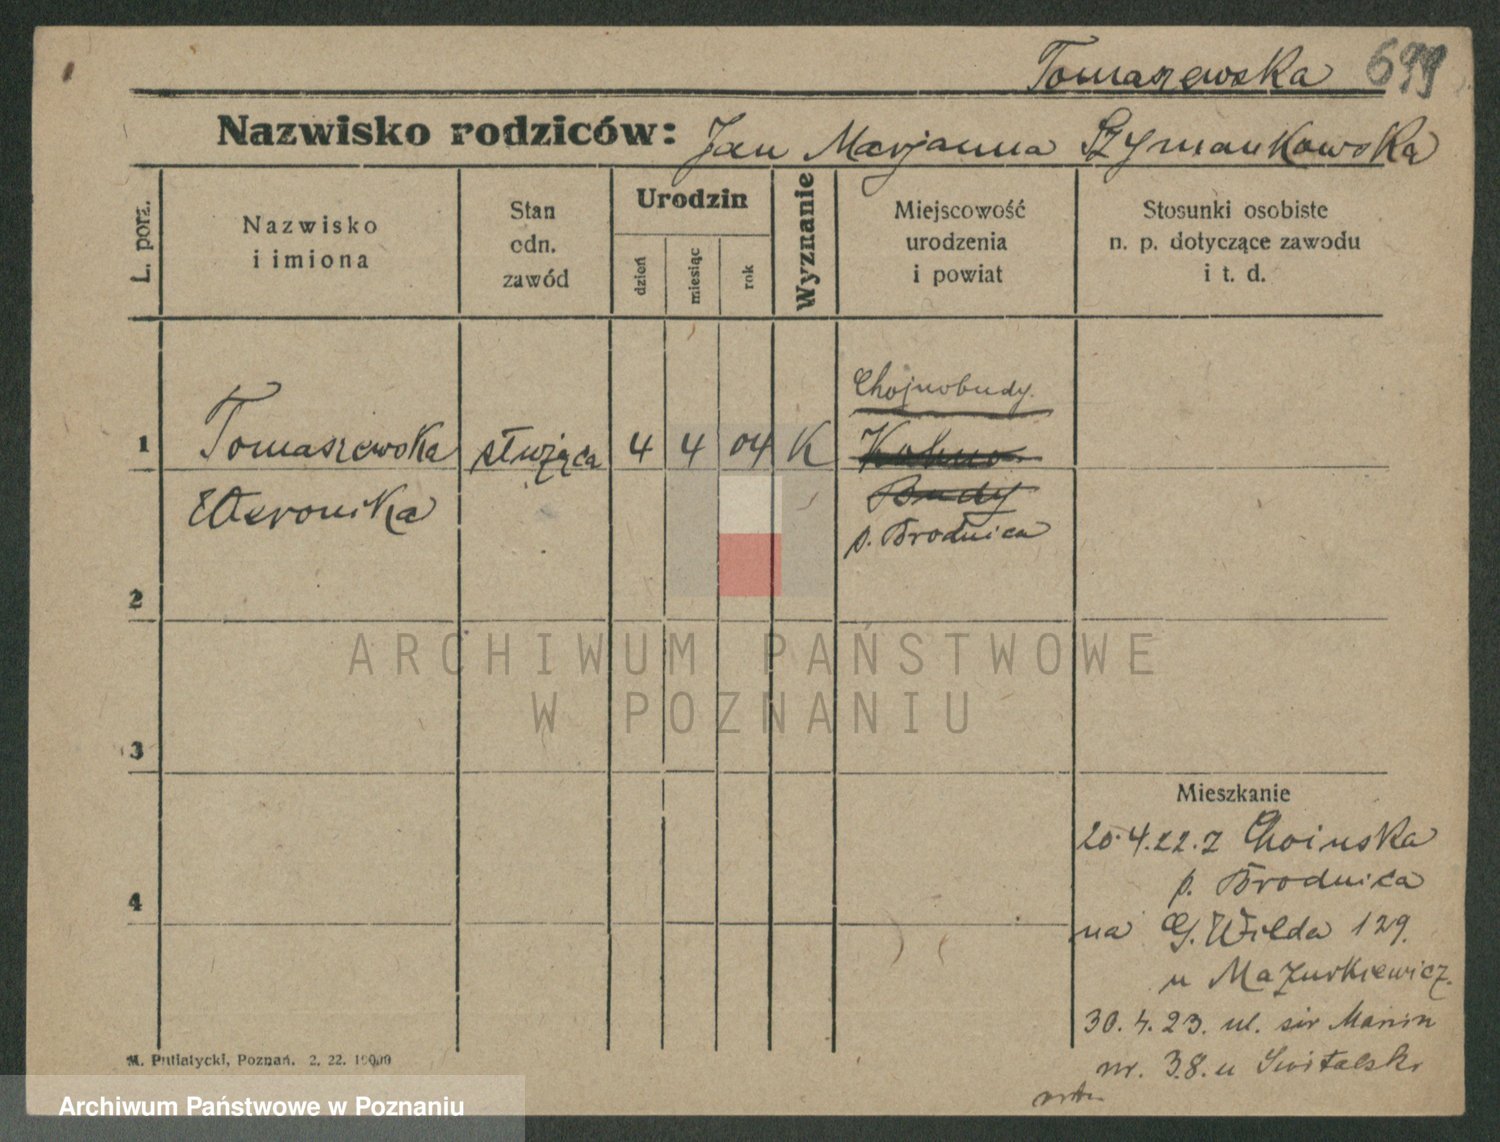 Tomaszewska 699
Nazwisko rodziców: Jan Marjanna Szymankowska
L. porz.
Nazwisko
i imiona
Stan
odn.
zawód
Urodzin
dzień
miesiąc
rok
Wyznanie
Miejscowość
urodzenia
i powiat
Stosunki osobiste
n. p. dotyczące zawodu
i t. d.
Chojnobudy.
1 Tomaszewska służąca 4 4 04 K
Weronika Budy
p. Brodnica
2
ARCHIWUM PAŃSTWOWE
W POZNANIU
3
Mieszkanie
20.4.22. z Choinska
p. Brodnica
4
na G. Wilda 129.
u Mazurkiewicz.
30.4.23. ul.
nr. 38. u Switalski
M. Putiatycki, Poznań. 2. 22. 10000
Archiwum Państwowe w Poznaniu